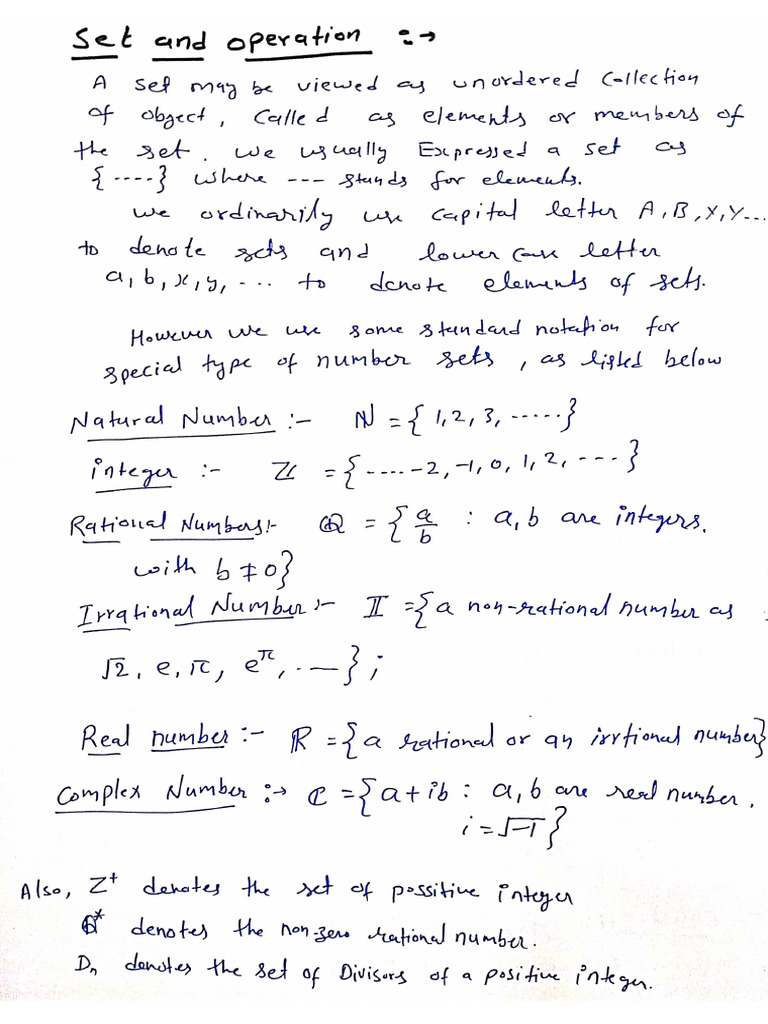 Set and operation :→
A set may be viewed as unordered collection
of object, called as elements or members of
the set. we usually Expressed a set as
{ ----} where --- stands for elements.
we ordinarily use capital letter A, B, X, Y...
to denote sets and lower case letter
a, b, x, y, ... to denote elements of sets.
However we use some standard notation for
special type of number sets, as listed below
Natural Number :- ℕ = { 1, 2, 3, .....}
integer :- ℤ = {-----2, -1, 0, 1, 2, ---}
Rational Numbers:- ℚ = { a/b : a, b are integers.
with b ≠ 0}
Irrational Number :- 𝕀 = {a non-rational number as
√2, e, π, e^π, .—};
Real number :- ℝ = {a rational or an irrtional number}
Complex Number :→ ℂ = {a + ib : a, b are real number,
i = √-1}
Also, Z⁺ denotes the set of possitive integer
Q* denotes the non-zero rational number.
Dₙ denotes the set of Divisors of a positive integer.